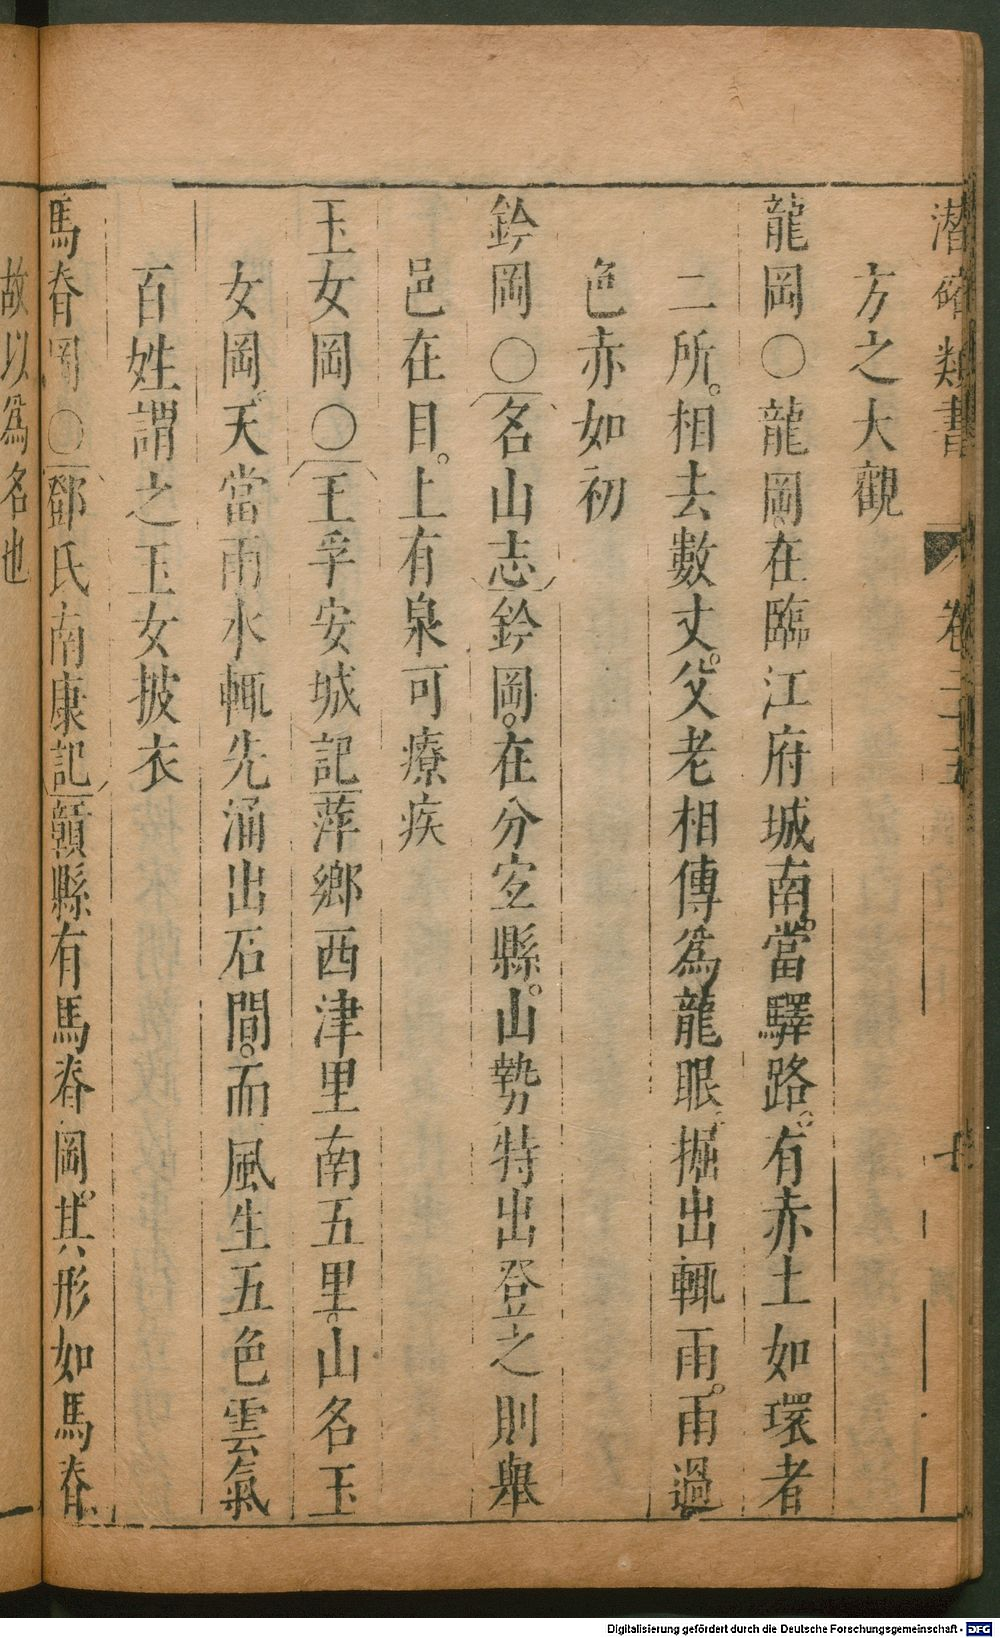 潛確類書 卷二十五 十
方之大觀
龍岡○龍岡在臨江府城南。當驛路。有赤土如環者
二所。相去數丈。父老相傳爲龍眼。掘出輒雨。雨過
色赤如初
鈐岡○名山志鈐岡。在分宜縣。山勢特出登之則舉
邑在目。上有泉可療疾
玉女岡○王孚安城記萍鄉西津里南五里。山名玉
女岡。天當雨水輒先涌出石間。而風生五色雲氣
百姓謂之玉女披衣
馬脊岡○鄧氏南康記贛縣有馬脊岡。其形如馬脊
故以爲名也
Digitalisierung gefördert durch die Deutsche Forschungsgemeinschaft - DFG